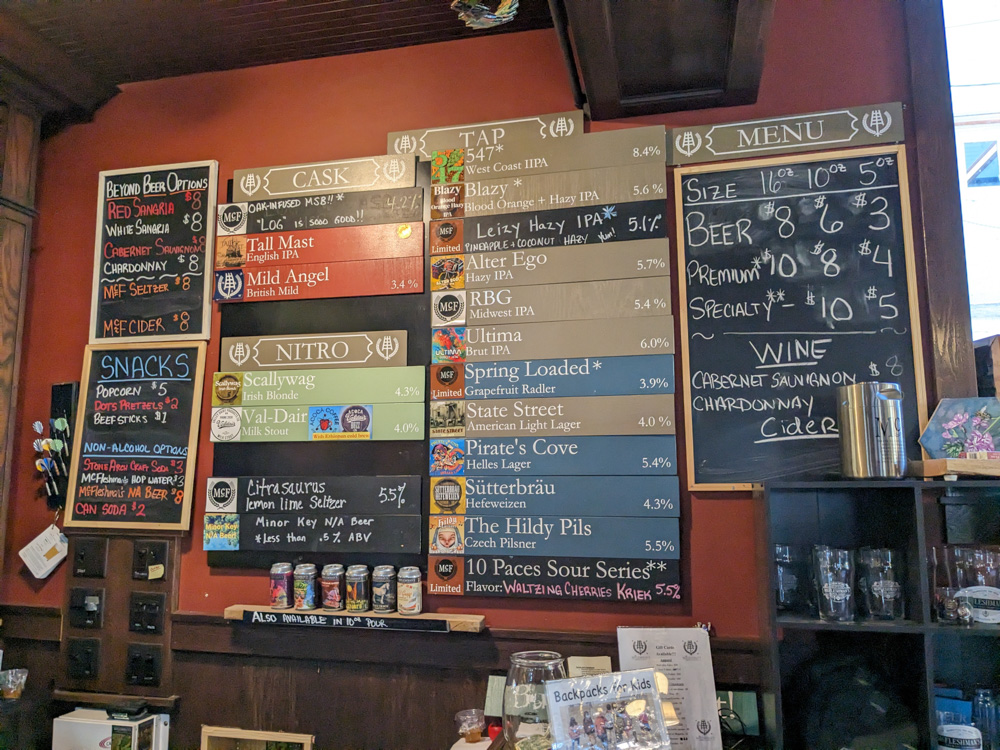 BEYOND BEER OPTIONS
RED SANGRIA $8
WHITE SANGRIA $8
CABERNET SAUVIGNON $8
CHARDONNAY $8
McF SELTZER $8
McF CIDER $8
SNACKS
POPCORN $5
DOTS PRETZELS $2
BEEF STICKS $1
NON-ALCOHOL OPTIONS
STONE ARCH CRAFT SODA $3
McFLESHMAN'S HOP WATER $3
McFLESHMAN'S NA BEER $8
CAN SODA $2
CASK
McF
OAK-INFUSED MSB!!* 4.2%
"LOG" IS SOOO GOOD!!
Tall Mast
English IPA
Mild Angel
British Mild 3.4 %
NITRO
Scallywag
Irish Blonde 4.3%
Val-Dair
Milk Stout 4.0%
McF
Citrasaurus
lemon lime Seltzer 5.5%
Minor Key
N/A Beer!
Minor Key N/A Beer
*Less than .5% ABV
ALSO AVAILABLE IN 10oz POUR
TAP
547*
West Coast IIPA 8.4%
Blazy
Blood
Orange Hazy
IPA
Blazy *
Blood Orange + Hazy IPA 5.6 %
McF
Limited
Leizy Hazy IPA* 5.1%
PINEAPPLE + COCONUT HAZY New!
Alter Ego
Hazy IPA 5.7%
McF
RBG
Midwest IPA 5.4 %
ULTIMA
Ultima
Brut IPA 6.0%
McF
Limited
Spring Loaded*
Grapefruit Radler 3.9%
STATE STREET
State Street
American Light Lager 4.0 %
Pirate's Cove
Helles Lager 5.4%
SÜTTERBRÄU
HEFEWEIZEN
Sütterbräu
Hefeweizen 4.3%
Hildy
The Hildy Pils
Czech Pilsner 5.5%
McF
Limited
10 Paces Sour Series**
Flavor: WALTZING CHERRIES KRIEK 5.5%
MENU
SIZE 16oz 10oz 5oz
BEER $8 $6 $3
PREMIUM* $10 $8 $4
SPECIALTY** - $10 $5
WINE
CABERNET SAUVIGNON $8
CHARDONNAY
CIDER
Backpacks for Kids